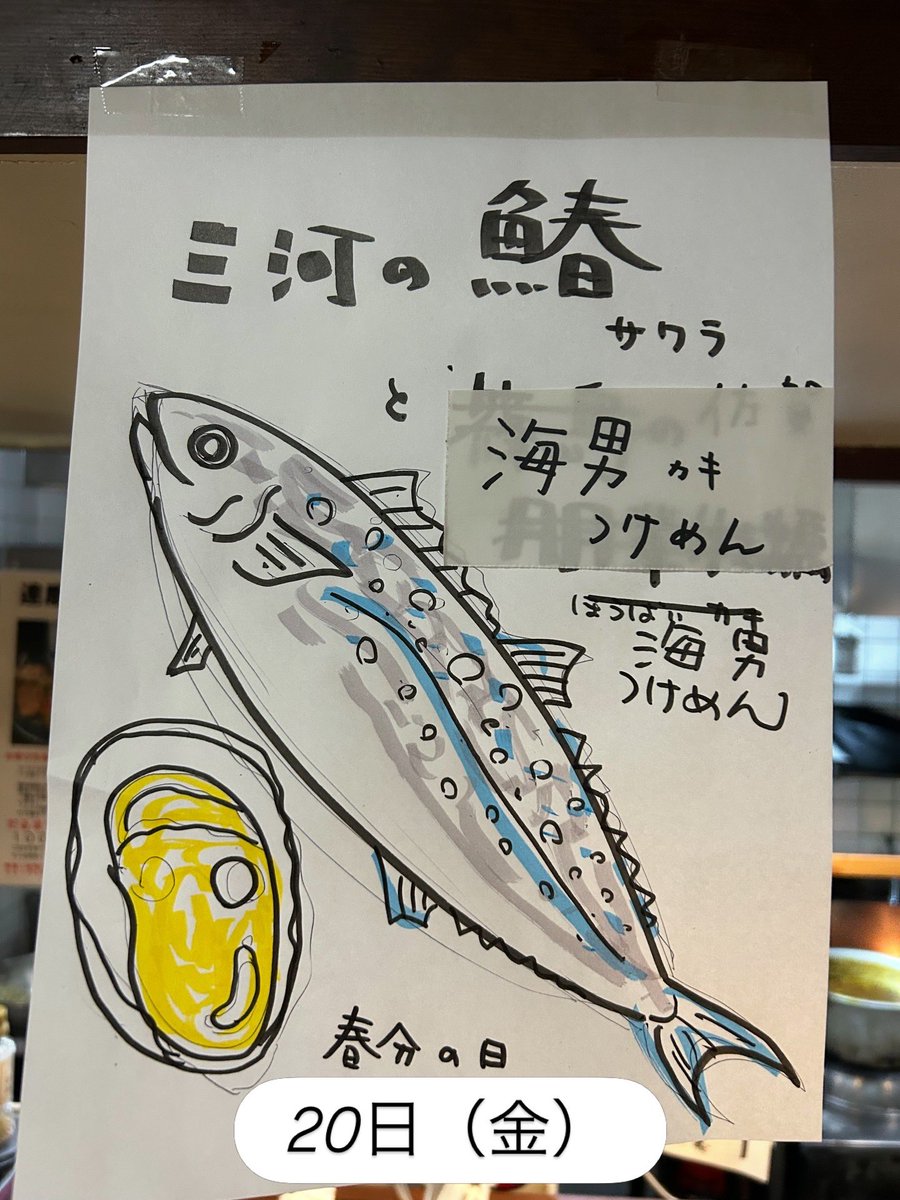 三河の鰆
サワラ
と
海男 カキ
つけめん
海男
つけめん
春分の日
20日（金）